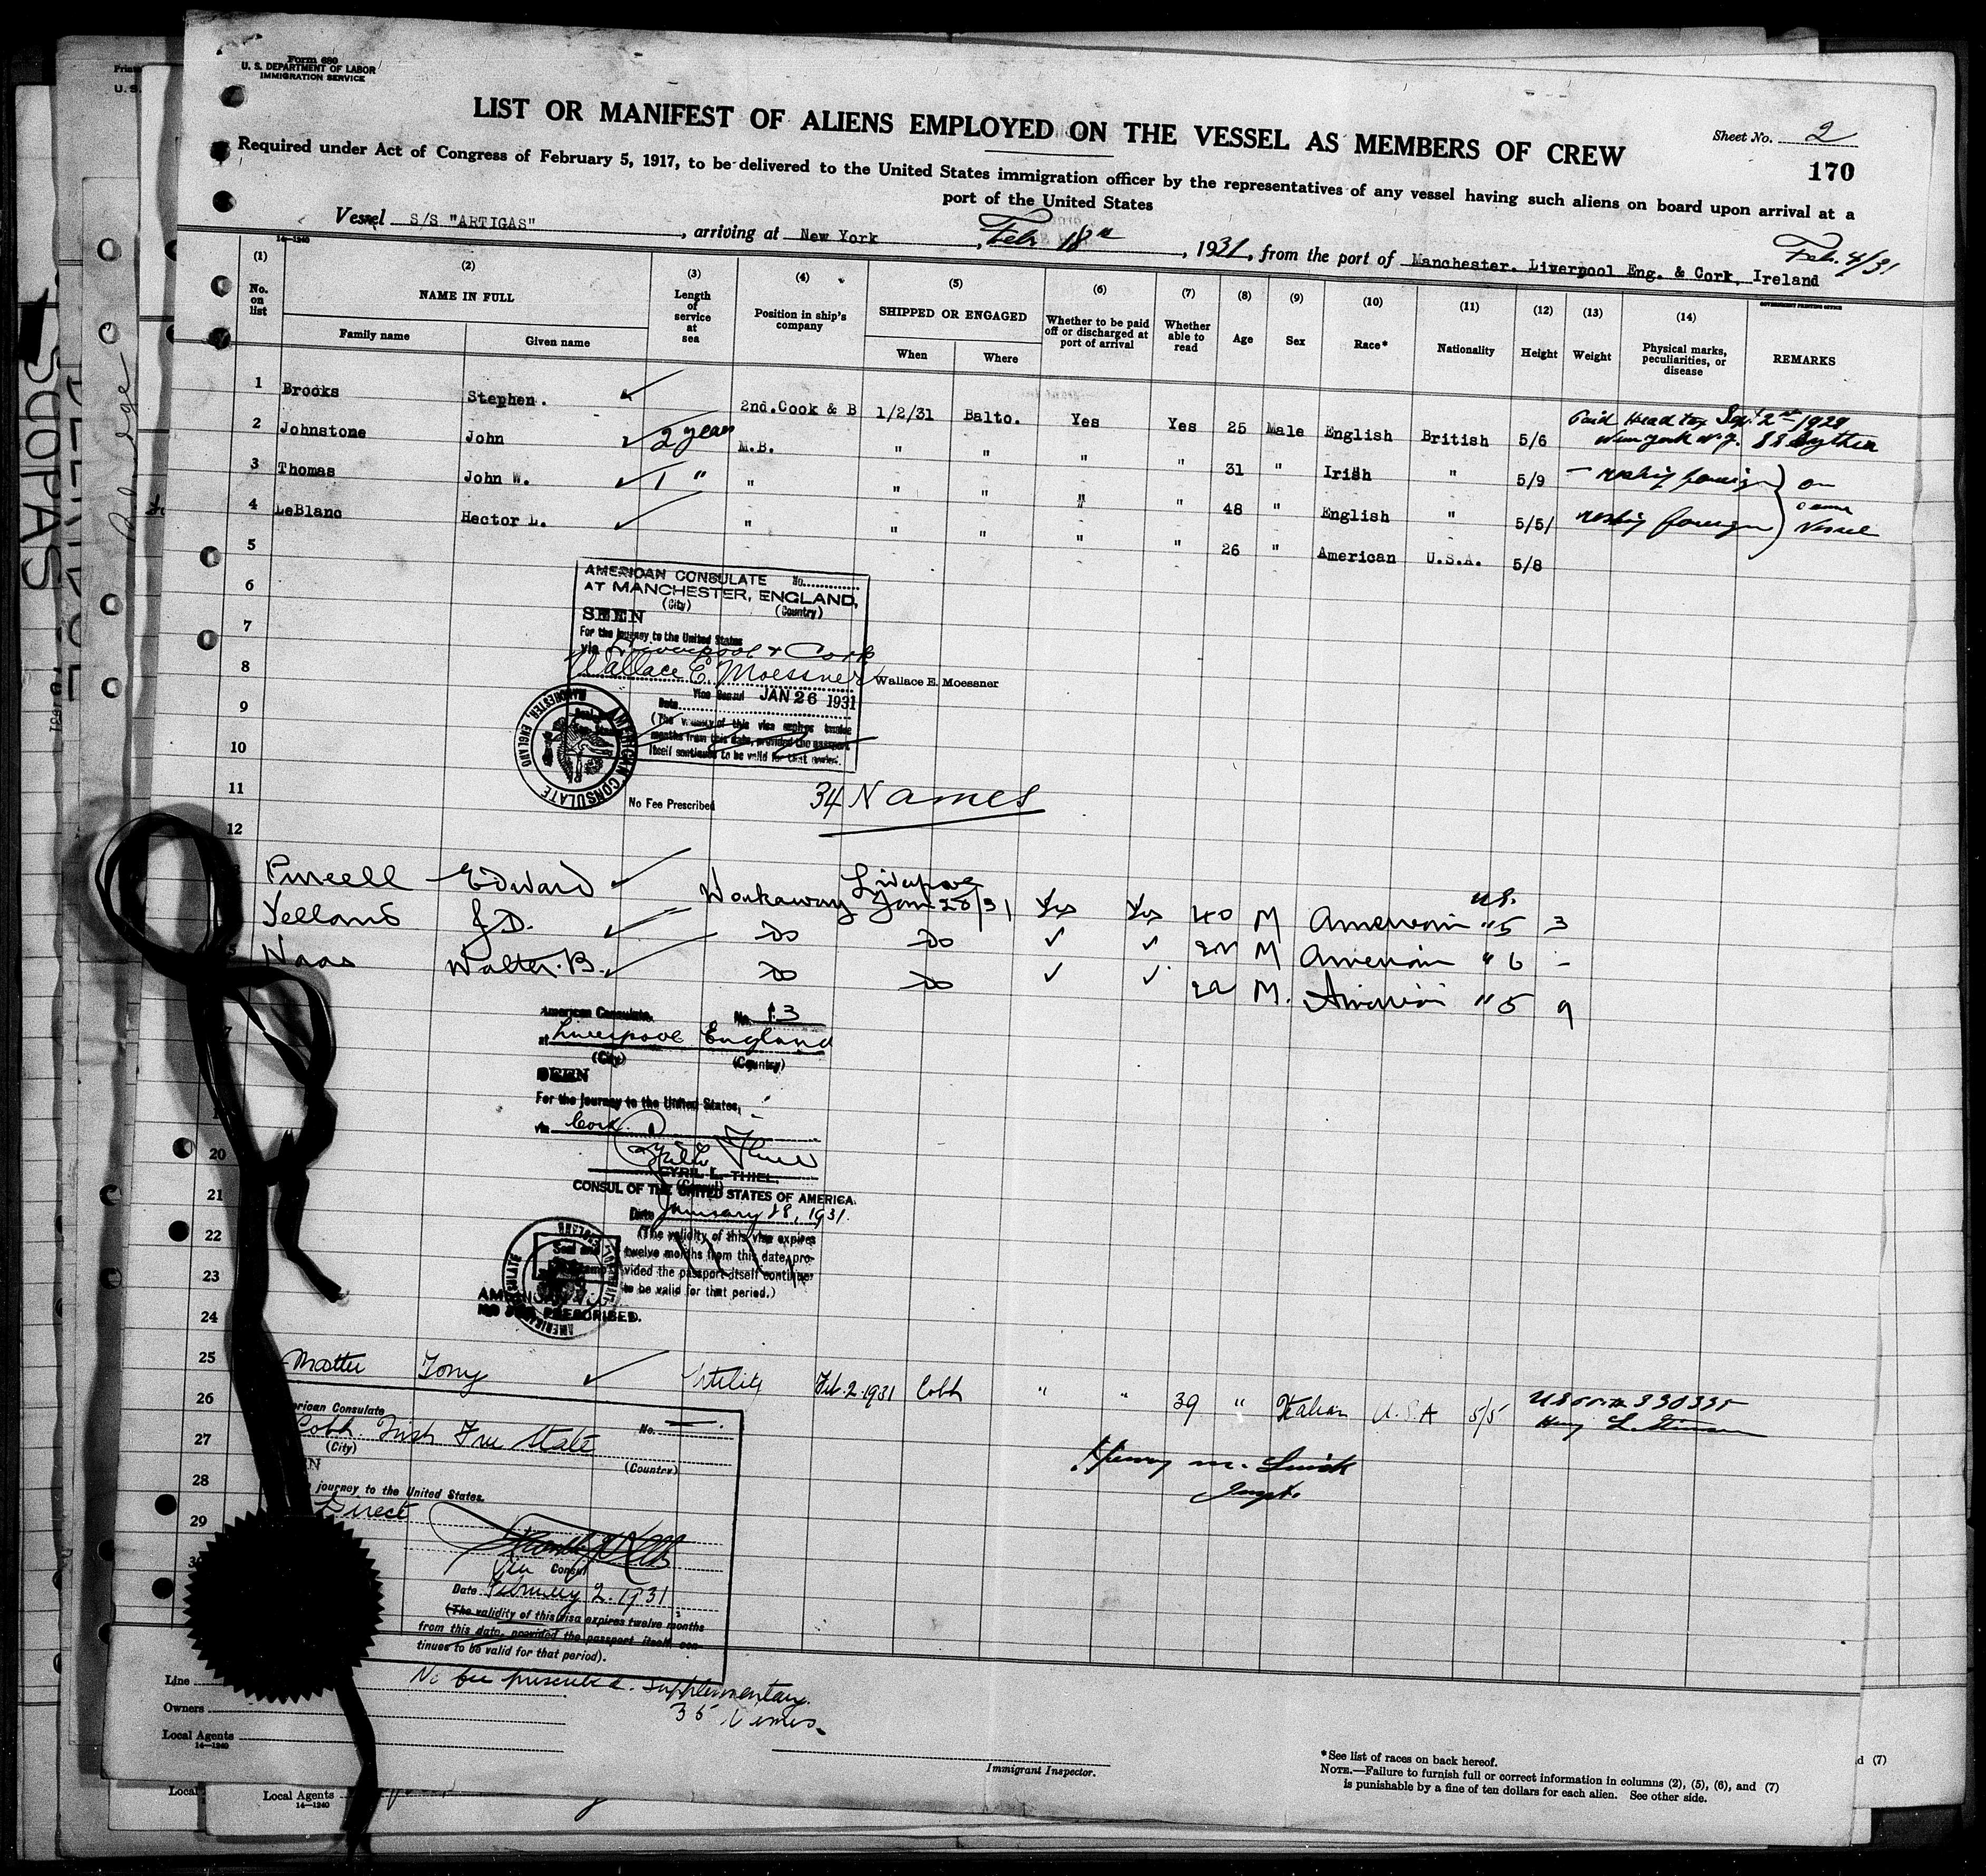 Form 680
U. S. DEPARTMENT OF LABOR
IMMIGRATION SERVICE
LIST OR MANIFEST OF ALIENS EMPLOYED ON THE VESSEL AS MEMBERS OF CREW
Sheet No. 2
170
Required under Act of Congress of February 5, 1917, to be delivered to the United States immigration officer by the representatives of any vessel having such aliens on board upon arrival at a
port of the United States
Vessel S/S "ARTIGAS", arriving at New York, Feb 18th, 1931, from the port of Manchester. Liverpool Eng. & Cork, Ireland Feb. 4/31
14-1240
GOVERNMENT PRINTING OFFICE
(1) (2) (3) (4) (5) (6) (7) (8) (9) (10) (11) (12) (13) (14)
No. on list NAME IN FULL Length of service at sea Position in ship's company SHIPPED OR ENGAGED Whether to be paid off or discharged at port of arrival Whether able to read Age Sex Race* Nationality Height Weight Physical marks, peculiarities, or disease REMARKS
Family name Given name When Where
1 Brooks Stephen. 2nd.Cook & B 1/2/31 Balto. Yes Yes 25 Male English British 5/6 Paid Head tax Sept 2nd 1929
New York N.Y. SS Scythia
2 Johnstone John 2 years M.B. " " " " 31 " Irish " 5/9 - reship foreign on
3 Thomas John W. 1 " " " " " " 48 " English " 5/5/ reship foreign same
Vessel
4 LeBlanc Hector L. " " " " " 26 " American U.S.A. 5/8
5
6
7
8
9
10
11
12
AMERICAN CONSULATE No.
AT MANCHESTER, ENGLAND,
(City) (Country)
SEEN
For the journey to the United States
via Liverpool & Cork
Wallace E. Moessner Wallace E. Moessner
Vice Consul JAN 26 1931
Date
(The validity of this visa expires twelve
months from this date, provided the passport
itself continues to be valid for that period.
AMERICAN CONSULATE MANCHESTER, ENGLAND
No Fee Prescribed
34 Names
Purcell Edward Workaway Liverpool Jan 28/31 Yes Yes 40 M American U.S. 5 3
Yelland J.D. Do Do M American " 6 -
Haas Walter. B. Do Do 22 M. American " 5 9
American Consulate. No. 13
at Liverpool England
(City) (Country)
SEEN
For the journey to the United States,
via Cork
CYRIL L. THIEL,
(Consul)
CONSUL OF THE UNITED STATES OF AMERICA.
Date January 28, 1931.
(The validity of this visa expires
twelve months from this date, pro-
vided the passport itself continues
to be valid for that period.)
NO FEE PRESCRIBED.
20
21
22
23
24
25 Tony Utility Feb. 2. 1931 Cobh " " 39 " Italian U.S.A 5/5
26
27
28
29
30
American Consulate
Cobh. Irish Free State No.
(City) (Country)
journey to the United States.
Direct
Vice Consul
Date February 2. 1931
(The validity of this visa expires twelve months
from this date, provided the passport itself con-
tinues to be valid for that period).
Inspt.
No fee prescribed. Supplementary.
35 Names.
Line
Owners
Local Agents
14-1240
Immigrant Inspector.
*See list of races on back hereof.
NOTE.—Failure to furnish full or correct information in columns (2), (5), (6), and (7)
is punishable by a fine of ten dollars for each alien. See other side.
Local Agents
14-1240
d (7)